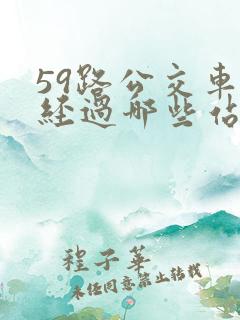 59路公交車
經過哪些佔
程子華
未经同意禁止转载